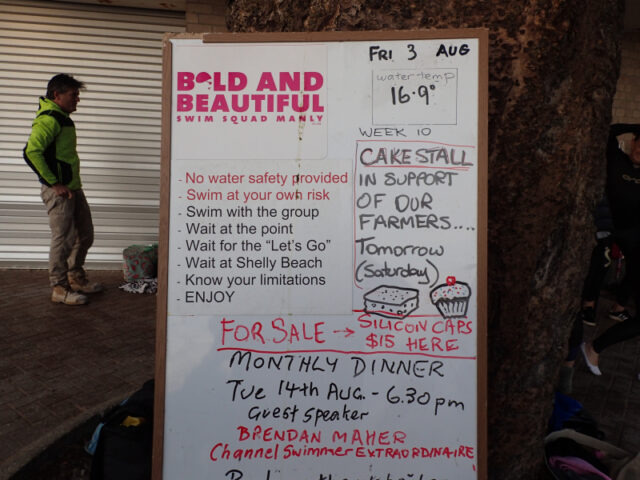 FRI 3 AUG
BOLD AND
BEAUTIFUL
SWIM SQUAD MANLY
water temp
16.9°
- No water safety provided
- Swim at your own risk
- Swim with the group
- Wait at the point
- Wait for the "Let's Go"
- Wait at Shelly Beach
- Know your limitations
- ENJOY
WEEK 10
CAKE STALL
IN SUPPORT
OF OUR
FARMERS....
Tomorrow
(Saturday)
FOR SALE → SILICON CAPS
$15 HERE
MONTHLY DINNER
Tue 14th AUG. - 6.30pm
Guest Speaker
BRENDAN MAHER
Channel Swimmer EXTRAORDINAIRE